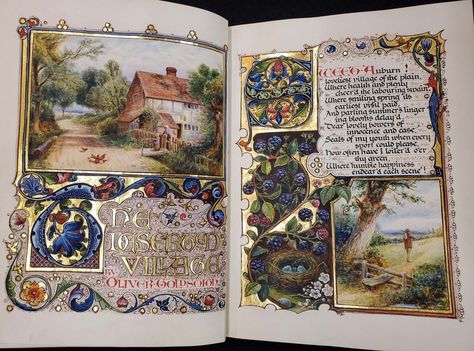 THE
DESERTED
VILLAGE
BY OLIVER GOLDSMITH
SWEET Auburn !
loveliest village of the plain,
Where health and plenty
cheer'd the labouring swain,
Where smiling spring its
earliest visit paid,
And parting summer's linger
ing blooms delay'd,
Dear lovely bowers of
innocence and ease,
Seats of my youth when every
sport could please,
How often have I loiter'd o'er
thy green,
Where humble happiness
endear'd each scene !